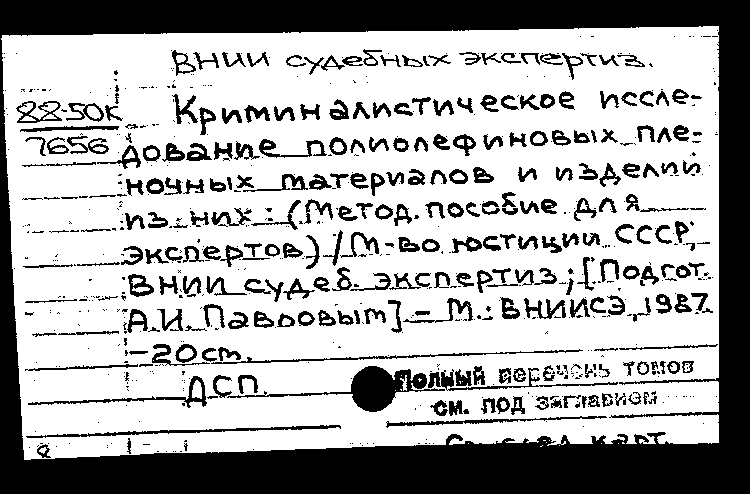 ВНИИ судебных экспертиз.
88-50К Криминалистическое иссле-
7656 дование полиолефиновых пле-
ночных материалов и изделий
из них: (Метод. пособие для
экспертов) / М-во юстиции СССР,
ВНИИ судеб. экспертиз; [Подгот.
А.И. Павловым] – М.: ВНИИСЭ, 1987.
–20 ст.
ДСП.
Полный перечень томов
см. под заглавием
карт.